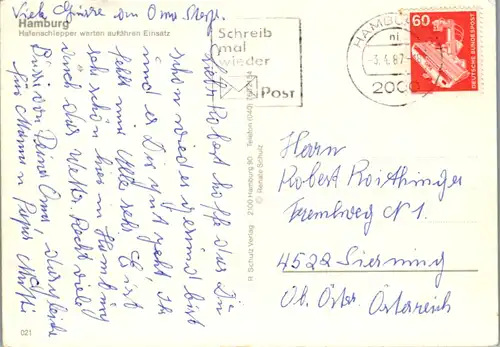 Viele Grüsse am Oma Steffi
Hamburg
Hafenschlepper warten auf ihren Einsatz
Schreib
mal
wieder
Post
HAMBURG
-3.4.87-
2000
60
DEUTSCHE BUNDESPOST
Lieber Robert hoffe das Du
schon wieder gesund bist
und es Dir gut geht, Du
fehlst mir sehr. Es ist
sehr schön hier in Hamburg
auch das Wetter. Recht viele
Bussi von Deiner Oma, dasgleiche
für Mama u Papa
R. Schulz Verlag 2100 Hamburg 90 Telefon (040)
© Renate Schulz
Herrn
Robert Roithinger
N 1.
4522 Sierning
Ob. Östr. Österreich
021